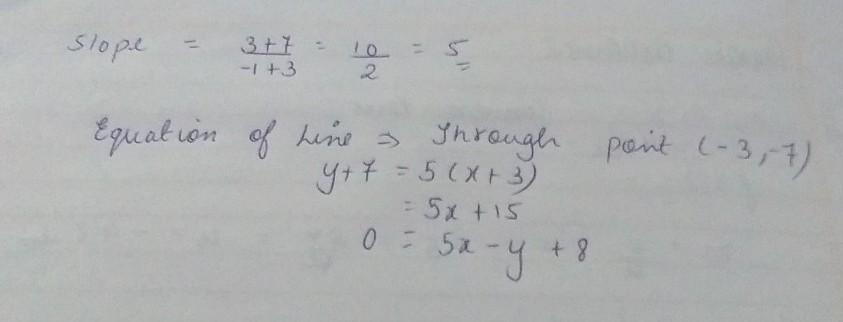 Slope = 3+7/-1+3 = 10/2 = 5
Equation of Line ⇒ Through point (-3,-7)
y+7 = 5(x+3)
= 5x+15
0 = 5x-y+8